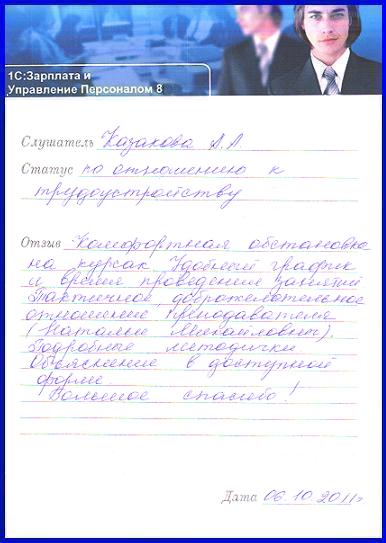 1С:Зарплата и
Управление Персоналом 8
Слушатель Казакова А.А.
Статус по отношению к
трудоустройству
Отзыв Комфортная обстановка
на курсах. Удобный график
и время проведения занятий
Тактичное, доброжелательное
отношение преподавателя
(Натальи Михайловны).
Подробные методички
Объяснение в доступной
форме
Большое спасибо!
Дата 06.10.2011г